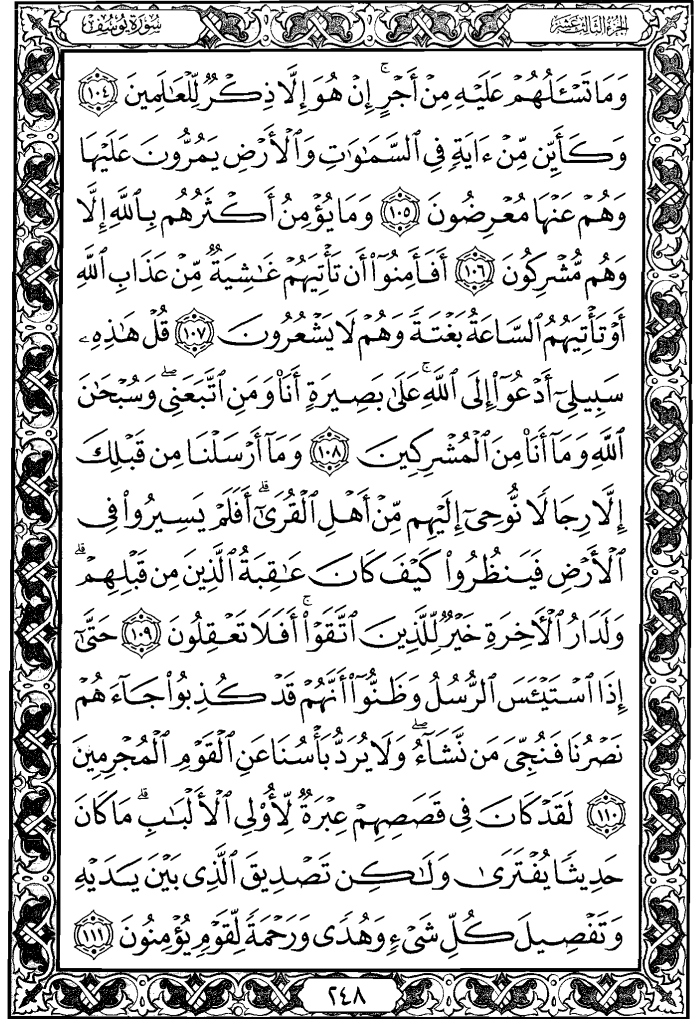 الجزء الثالث عشر
سورة يوسف
وَمَا تَسْـَٔلُهُمْ عَلَيْهِ مِنْ أَجْرٍ ۚ إِنْ هُوَ إِلَّا ذِكْرٌ لِّلْعَٰلَمِينَ ١٠٤
وَكَأَيِّن مِّنْ ءَايَةٍ فِى ٱلسَّمَٰوَٰتِ وَٱلْأَرْضِ يَمُرُّونَ عَلَيْهَا
وَهُمْ عَنْهَا مُعْرِضُونَ ١٠٥ وَمَا يُؤْمِنُ أَكْثَرُهُم بِٱللَّهِ إِلَّا
وَهُم مُّشْرِكُونَ ١٠٦ أَفَأَمِنُوٓا۟ أَن تَأْتِيَهُمْ غَٰشِيَةٌ مِّنْ عَذَابِ ٱللَّهِ
أَوْ تَأْتِيَهُمُ ٱلسَّاعَةُ بَغْتَةً وَهُمْ لَا يَشْعُرُونَ ١٠٧ قُلْ هَٰذِهِۦ
سَبِيلِىٓ أَدْعُوٓا۟ إِلَى ٱللَّهِ ۚ عَلَىٰ بَصِيرَةٍ أَنَا۠ وَمَنِ ٱتَّبَعَنِى ۖ وَسُبْحَٰنَ
ٱللَّهِ وَمَآ أَنَا۠ مِنَ ٱلْمُشْرِكِينَ ١٠٨ وَمَآ أَرْسَلْنَا مِن قَبْلِكَ
إِلَّا رِجَالًا نُّوحِىٓ إِلَيْهِم مِّنْ أَهْلِ ٱلْقُرَىٰٓ ۗ أَفَلَمْ يَسِيرُوا۟ فِى
ٱلْأَرْضِ فَيَنظُرُوا۟ كَيْفَ كَانَ عَٰقِبَةُ ٱلَّذِينَ مِن قَبْلِهِمْ ۗ
وَلَدَارُ ٱلْءَاخِرَةِ خَيْرٌ لِّلَّذِينَ ٱتَّقَوْا۟ ۚ أَفَلَا تَعْقِلُونَ ١٠٩ حَتَّىٰٓ
إِذَا ٱسْتَيْـَٔسَ ٱلرُّسُلُ وَظَنُّوٓا۟ أَنَّهُمْ قَدْ كُذِبُوا۟ جَآءَهُمْ
نَصْرُنَا فَنُجِّىَ مَن نَّشَآءُ ۖ وَلَا يُرَدُّ بَأْسُنَا عَنِ ٱلْقَوْمِ ٱلْمُجْرِمِينَ
١١٠ لَقَدْ كَانَ فِى قَصَصِهِمْ عِبْرَةٌ لِّأُو۟لِى ٱلْأَلْبَٰبِ ۗ مَا كَانَ
حَدِيثًا يُفْتَرَىٰ وَلَٰكِن تَصْدِيقَ ٱلَّذِى بَيْنَ يَدَيْهِ
وَتَفْصِيلَ كُلِّ شَىْءٍ وَهُدًى وَرَحْمَةً لِّقَوْمٍ يُؤْمِنُونَ ١١١
٢٤٨